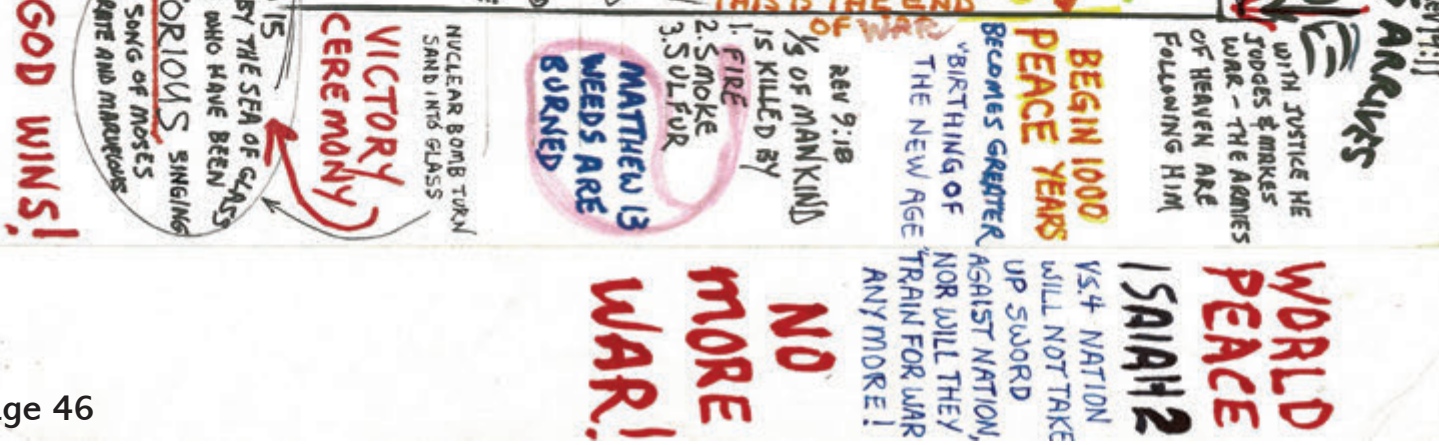 REV 19:11
ARRIVES
WITH JUSTICE HE
JUDGES & MAKES
WAR - THE ARMIES
OF HEAVEN ARE
FOLLOWING HIM
WORLD
PEACE
ISAIAH 2
VS.4 NATION
WILL NOT TAKE
UP SWORD
AGAIST NATION,
NOR WILL THEY
TRAIN FOR WAR
ANYMORE!
BEGIN 1000
PEACE YEARS
BECOMES GREATER
"BIRTHING OF
THE NEW AGE"
THIS IS THE END
OF WAR
REV 9:18
1/3 OF MANKIND
IS KILLED BY
1. FIRE
2. SMOKE
3. SULFUR
MATTHEW 13
WEEDS ARE
BURNED
NO
MORE
WAR!
NUCLEAR BOMB TURN
SAND INTO GLASS
VICTORY
CEREMONY
15
BY THE SEA OF GLASS
WHO HAVE BEEN
ORIOUS SINGING
SONG OF MOSES
AND MARVELOUS
GOD WINS!
ge 46